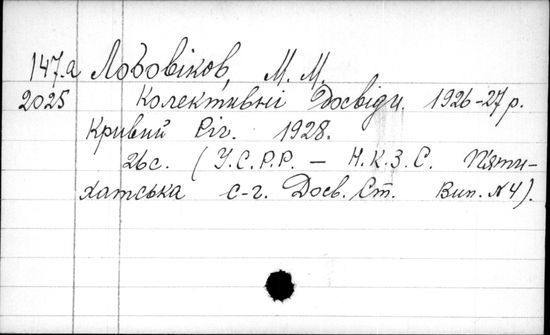 147.a Лобовіков, М. М.
2025 Колективні Досвіди. 1926-27 р.
Кривий Ріг. 1928.
26 с. (У.С.Р.Р. – Н.К.З.С. П'яти-
хатська с-г. Досв. Ст. Вип. №4).